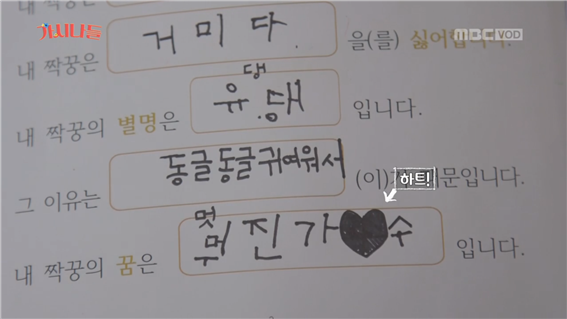 가시나들
MBC VOD
내 짝꿍은 거미다 을(를) 싫어합니다.
댕
내 짝꿍의 별명은 유.댕 입니다.
하트!
그 이유는 동글동글귀여워서 (이) 문입니다.
멋
내 짝꿍의 꿈은 뭐진가♥수 입니다.